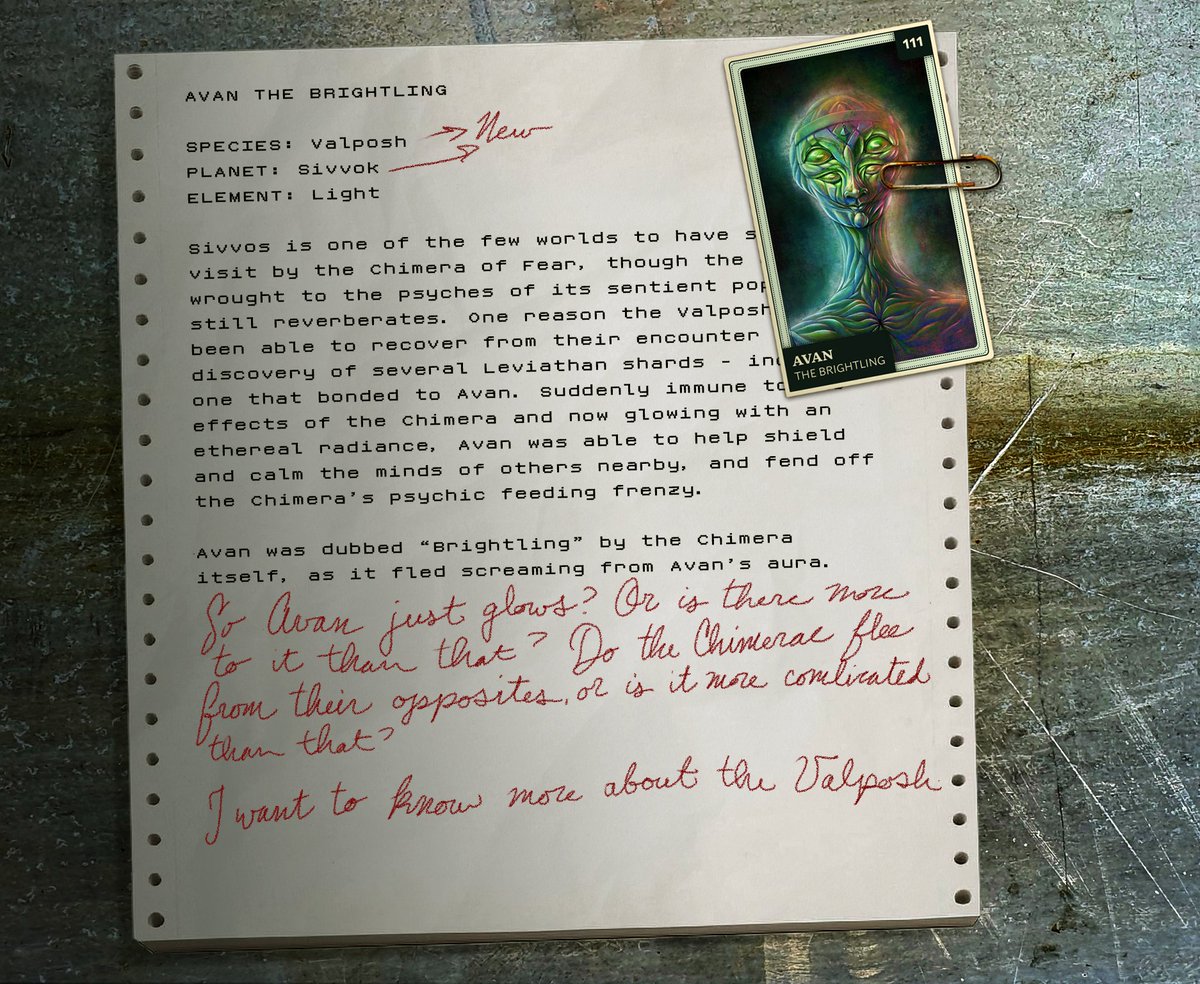 AVAN THE BRIGHTLING
SPECIES: Valposh → New
PLANET: Sivvok
ELEMENT: Light
Sivvos is one of the few worlds to have
visit by the Chimera of Fear, though the
wrought to the psyches of its sentient
still reverberates. One reason the Valposh
been able to recover from their encounter
discovery of several Leviathan shards –
one that bonded to Avan. Suddenly immune to
effects of the Chimera and now glowing with an
ethereal radiance, Avan was able to help shield
and calm the minds of others nearby, and fend off
the Chimera's psychic feeding frenzy.
Avan was dubbed “Brightling” by the Chimera
itself, as it fled screaming from Avan's aura.
So Avan just glows? Or is there more
to it than that? Do the Chimerae flee
from their opposites, or is it more comlicated
than that?
I want to know more about the Valposh
111
AVAN
THE BRIGHTLING